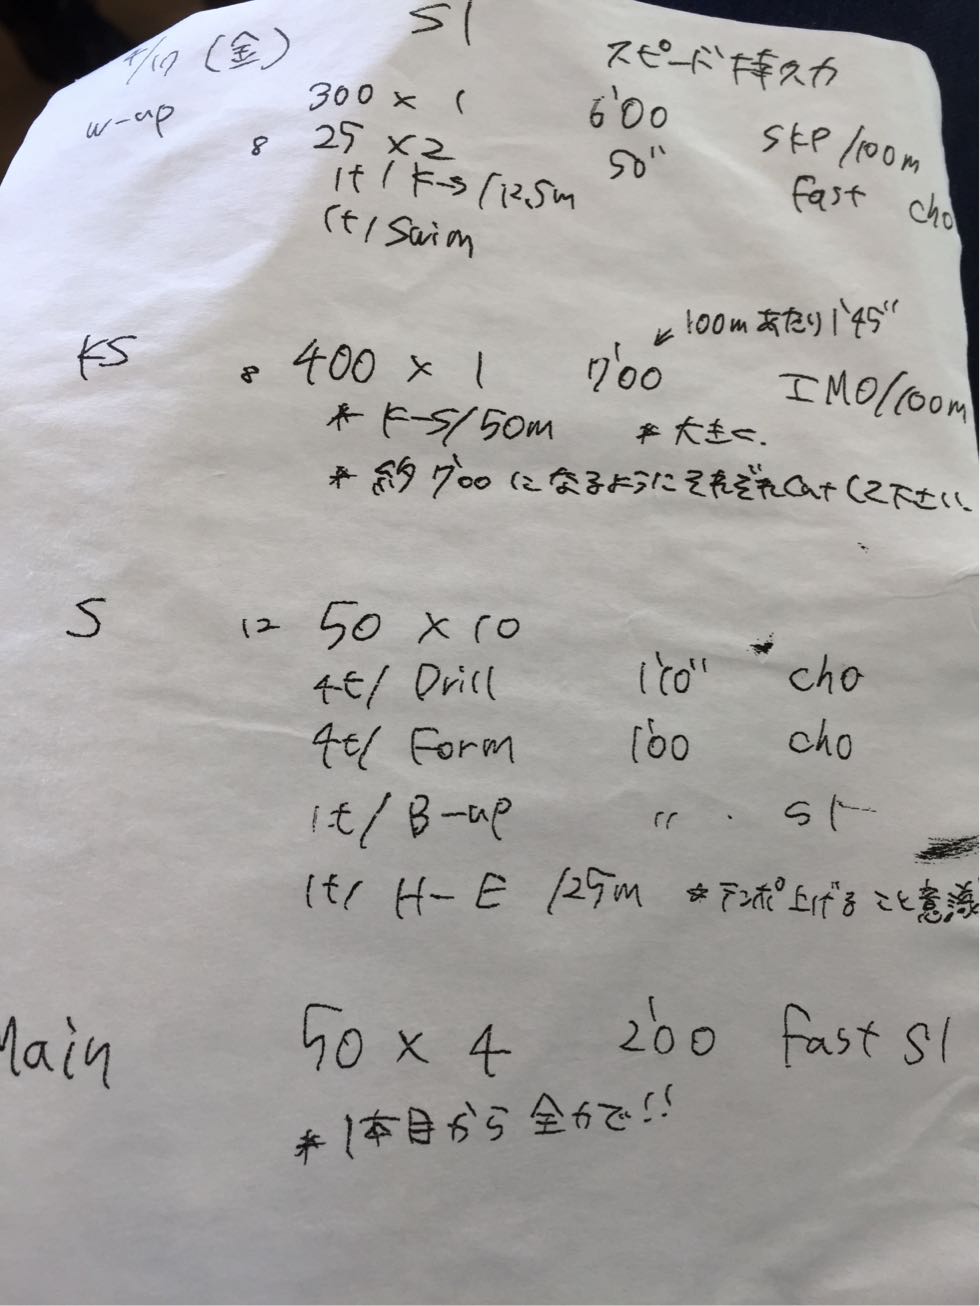 S1
4/17 (金) スピード持久力
w-up 300 × 1 6'00 SKP/100m
8 25 ×2 50" Fast cho
1t/K-S/12.5m
1t/Swim
100mあたり1'45"
KS 8 400 × 1 7'00 IMO/100m
* K-S/50m * 大きく.
* 約7'00になるようにそれぞれCutして下さい.
S 12 50 × 10
4t/ Drill 1'10" cho
4t/ Form 1'00 cho
1t/ B-up 〃 S1
1t/ H-E /25m * テンポ上げること意識
Main 50 × 4 2'00 Fast S1
* 1本目から全力で!!